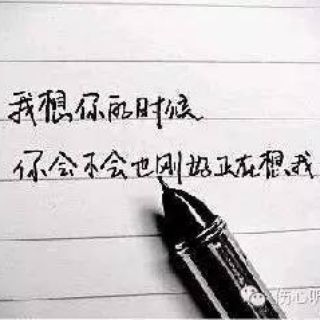 我想你的时候
你会不会也刚好正在想我
伤心